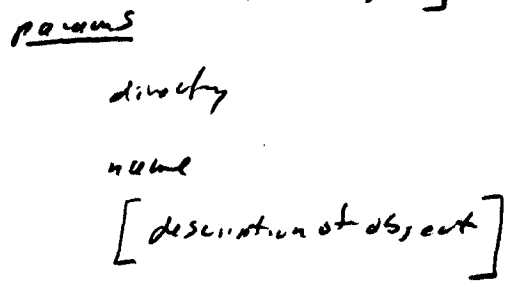 params
directory
name
[description of object]